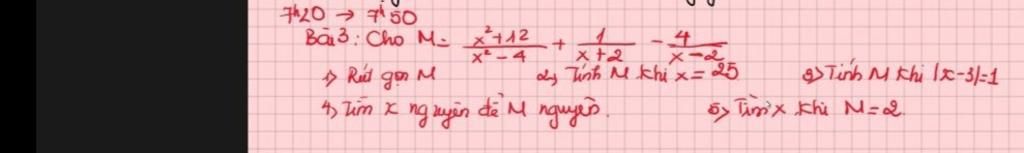 7h20 → 7h50
Bài 3: Cho M = \frac{x²+12}{x²-4} + \frac{1}{x+2} - \frac{4}{x-2}
1) Rút gọn M 2) Tính M khi x = 25 3) Tính M khi |x-3|=1
4) Tìm x nguyên để M nguyên. 5) Tìm x khi M=2.